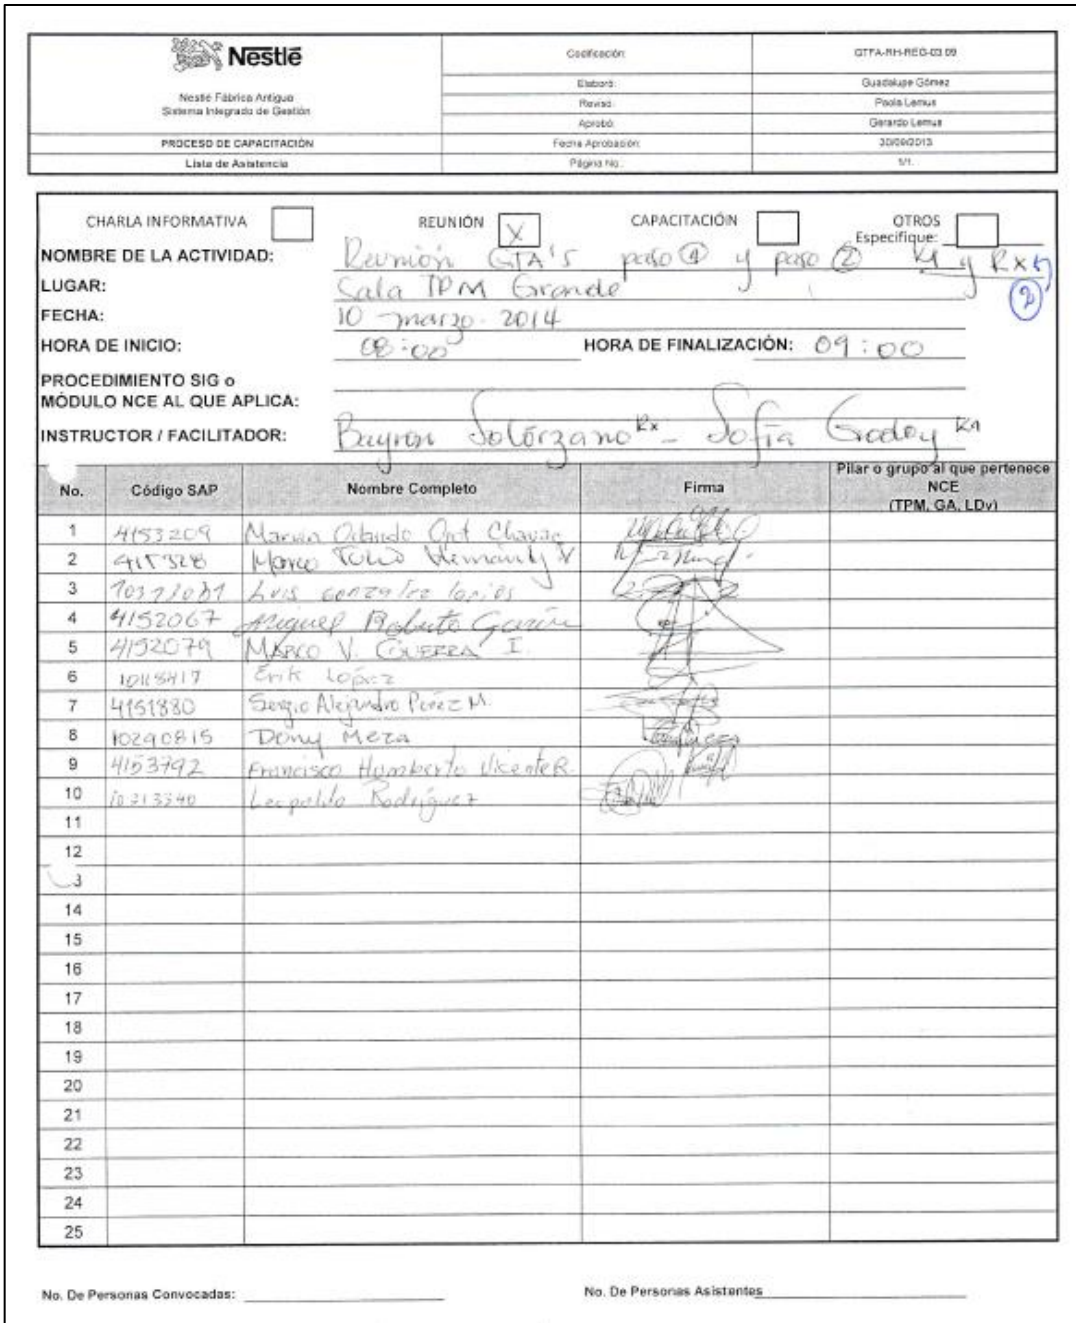 Nestlé
Nestlé Fábrica Antigua
Sistema Integrado de Gestión
PROCESO DE CAPACITACIÓN
Lista de Asistencia
Codificación: GTFA-RH-REG-03.09
Elaboró: Guadalupe Gómez
Revisó: Paola Lemus
Aprobó: Gerardo Lemus
Fecha Aprobación: 30/09/2013
Página No.: 1/1.
CHARLA INFORMATIVA REUNIÓN X CAPACITACIÓN OTROS
Especifique:
NOMBRE DE LA ACTIVIDAD: Reunión GTA's paso 1 y paso 2 K1 y Rx
2
LUGAR: Sala TPM Grande
FECHA: 10 marzo. 2014
HORA DE INICIO: 08:00 HORA DE FINALIZACIÓN: 09:00
PROCEDIMIENTO SIG o
MÓDULO NCE AL QUE APLICA:
INSTRUCTOR / FACILITADOR: Bayron Solórzano Rx - Sofía Godoy K1
No. Código SAP Nombre Completo Firma Pilar o grupo al que pertenece NCE (TPM, GA, LDv)
1 4153209 Marvin Orlando
2 415328 Marco Tulio Hernández V
3 Luis gonzalez
4 4152067 Miguel Roberto
5 4152079 MARCO V. GUERRA I.
6 10118417 Erik López
7 4151880 Sergio Alejandro Pérez M.
8 10290815 Dony Meza
9 4153792 Francisco Humberto Vicente R.
10 10313340 Leopoldo Rodríguez
11
12
3
14
15
16
17
18
19
20
21
22
23
24
25
No. De Personas Convocadas: No. De Personas Asistentes